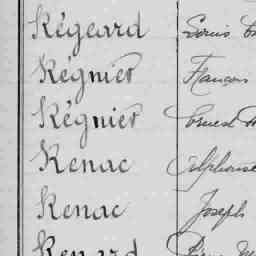 Régeard Louis
Régnier François
Régnier Ernest
Renac Alphonse
Renac Joseph
Renard Pierre